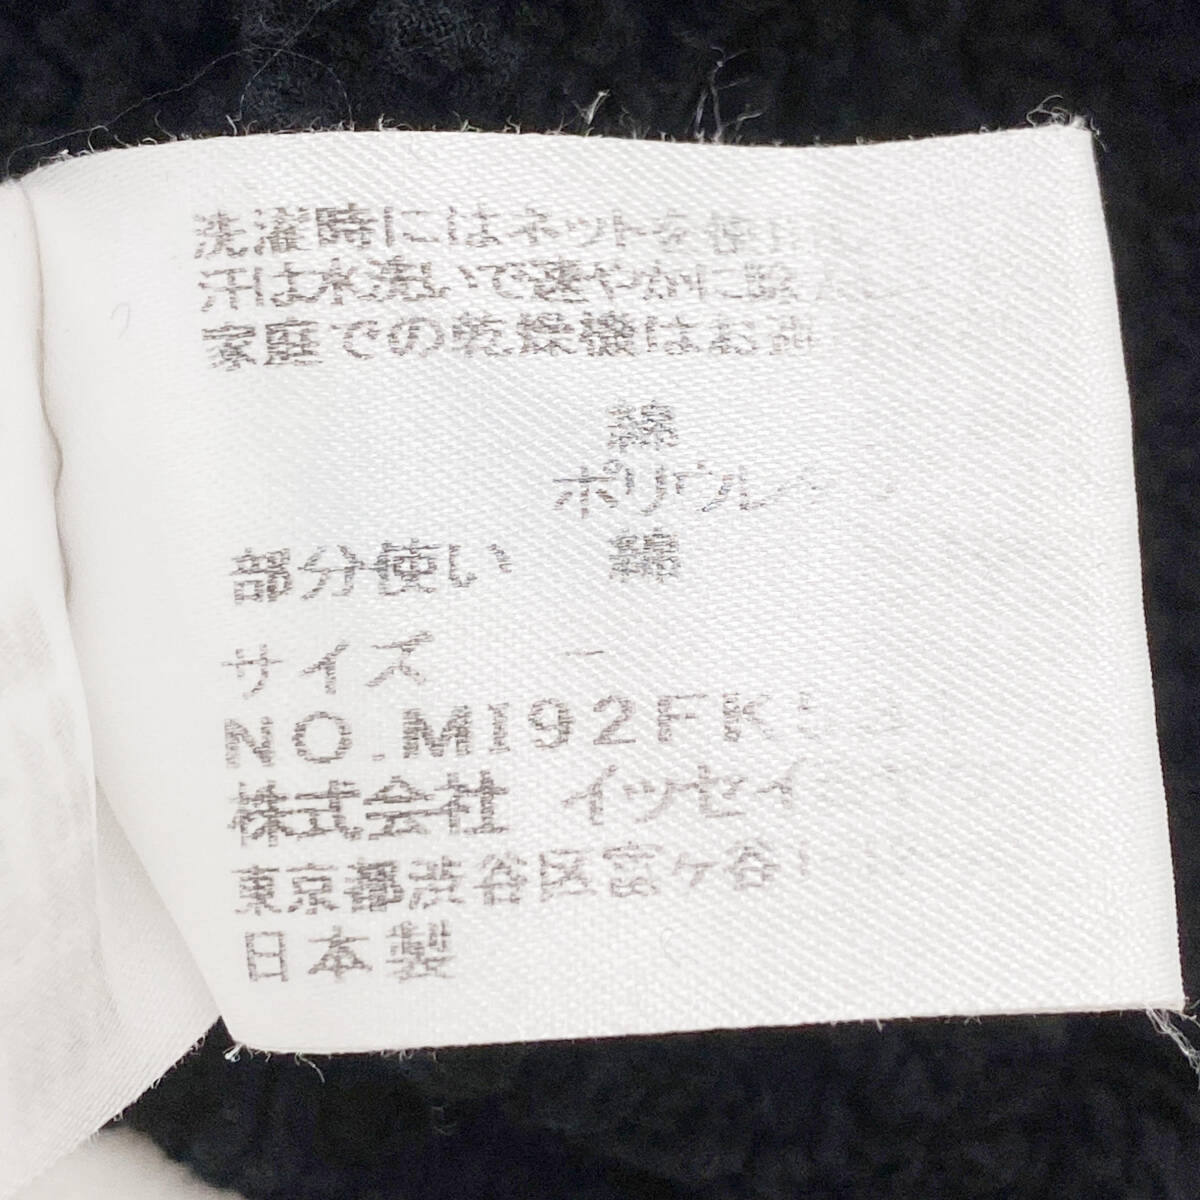 洗濯時にはネットを使
汗は水洗いで速やかに除
家庭での乾燥機はお避
綿
ポリウレ
部分使い 綿
サイズ -
NO.MI92FK
株式会社 イッセイ
東京都渋谷区富ヶ谷
日本製